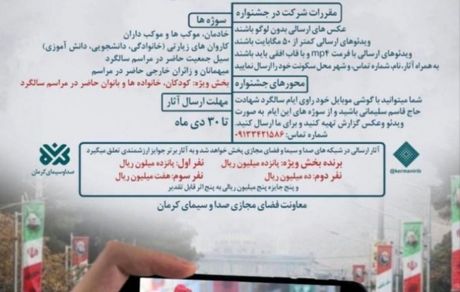 مقررات شرکت در جشنواره
عکس های ارسالی بدون لوگو باشند
ویدئوهای ارسالی کمتر از ۵۰ مگابایت باشند
ویدئوهای ارسالی با فرمت mp4 و با قاب افقی باید باشند
به همراه آثار، نام، شماره تماس، و شهر محل سکونت خود را ارسال نمایید
محورهای جشنواره
شما میتوانید با گوشی موبایل خود راوی ایام سالگرد شهادت
حاج قاسم سلیمانی باشید و از سوژه های این ایام به صورت
ویدئو وعکس گزارش تهیه کنید و برای ما ارسال کنید.
شماره تماس: ۰۹۱۳۳۴۲۱۵۸۶
سوژه ها
خادمان، موکب ها و موکب داران
کاروان های زیارتی (خانوادگی، دانشجویی، دانش آموزی)
سیل جمعیت حاضر در مراسم سالگرد
میهمانان و زائران خارجی حاضر در مراسم
بخش ویژه: کودکان، خانواده ها و بانوان حاضر در مراسم سالگرد
مهلت ارسال آثار
تا ۳۰ دی ماه
آثار ارسالی در شبکه های صدا و سیما و فضای مجازی پخش خواهد شد و به آثار برتر جوایز ارزشمندی تعلق میگیرد
برنده بخش ویژه: پانزده میلیون ریال
نفر اول: پانزده میلیون ریال
نفر دوم: ده میلیون ریال
نفر سوم: هفت میلیون ریال
و پنج جایزه پنج میلیون ریالی به پنج اثر قابل تقدیر
@kermanirib
صدا و سیمای کرمان
معاونت فضای مجازی صدا و سیمای کرمان